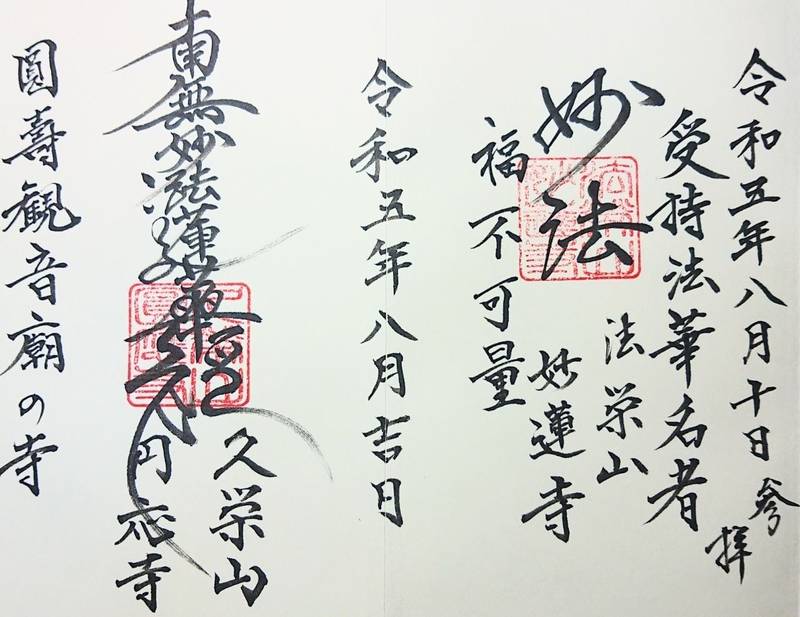 令和五年八月十日参拝
受持法華名者
福不可量
妙法
法栄山
妙蓮寺
令和五年八月吉日
南無妙法蓮華経
久栄山
円応寺
圓壽観音廟の寺